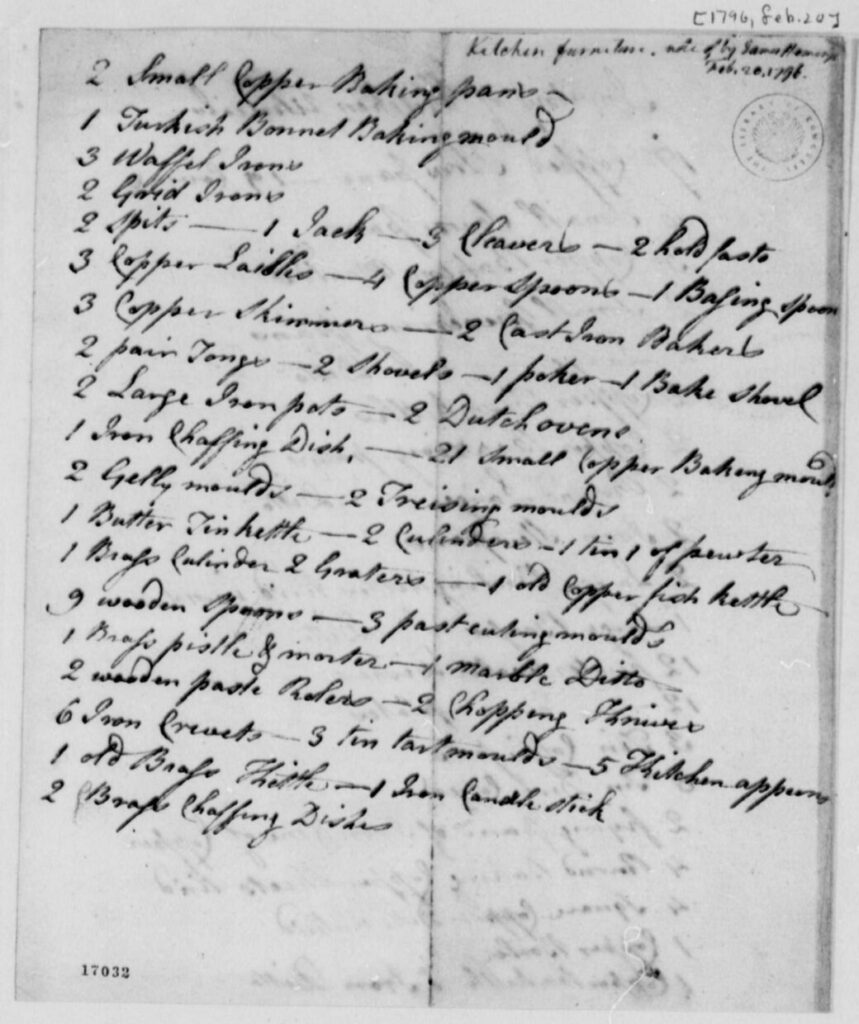 [1796, Feb. 20]
Kitchen furniture. note of by
Feb. 20, 1796.
THE LIBRARY OF CONGRESS
2 Small Copper Baking pans
1 Turkish Bonnet Baking mould
3 Waffel Irons
2 Grid Irons
2 Spits — 1 Jack — 3 Cleavers — 2 hold fasts
3 Copper Laidles — 4 Copper Spoons — 1 Basing spoon
3 Copper Skimmers — 2 Cast Iron Bakers
2 pair Tongs — 2 Shovels — 1 poker — 1 Bake Shovel
2 Large Iron pots — 2 Dutch ovens
1 Iron Chaffing Dish, — 21 Small Copper Bakeng moulds
2 Gelly moulds — 2 Freising moulds
1 Butter Tin kettle — 2 Culinders — 1 tin 1 of pewter
1 Brass Culinder 2 Graters — 1 old Copper fish kettle
9 wooden Spoons — 3 past cuting moulds
1 Brass pistle & morter — 1 marble Ditto
2 wooden paste Rolers — 2 Chopping Knives
6 Iron Crevets — 3 tin tart moulds — 5 Kitchen apperns
1 old Brass Kittle — 1 Iron Candle stick
2 Brass Chaffing Dishes
17032